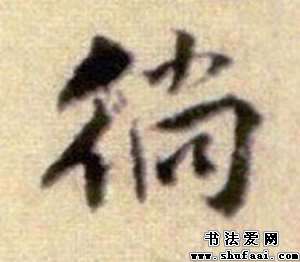 徜
书法爱网
www.shufaai.com